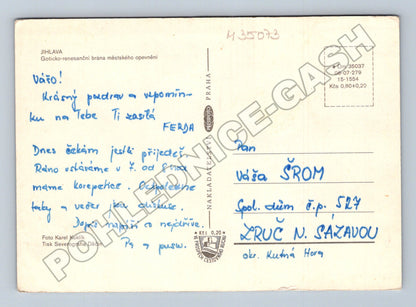 435073
JIHLAVA
Goticko-renesanční brána městského opevnění
Lim 35037
09-07-279
15-1554
Kčs 0,80+0,22
Vášo!
Krásný pozdrav a vzpomín-
ku na Tebe Ti zasílá
FERDA
Dnes čekám jestli přijedeš
Ráno vstáváme v 7. od
máme korepetice. Odpoledne
taky a večer
Dopis napíši co nejdříve.
Foto Karel
Tisk Severografia Děčín
NAKLADATELSTVÍ PRAHA
Kčs 0,20
Pan
Váša ŠROM
Spol. dům č.p. 527
ZRUČ N. SÁZAVOU
okr. Kutná Hora
POHLEDNICE-GASH